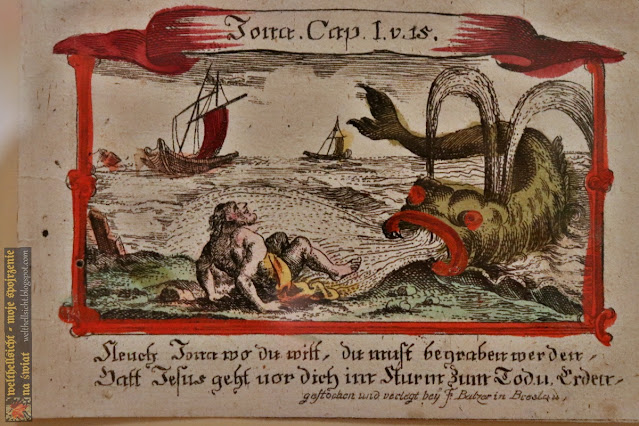 Jona. Cap. I. v. 15.
Fleuch Jona wo du wilt, du must begraben werden,
Gatt Jesus geht vor dich im Sturm zum Tod u. Erden.
gestochen und verlegt bey F. Batzer in Breslau,
welthellsicht - moje spojrzenie
na świat
welthellsicht.blogspot.com